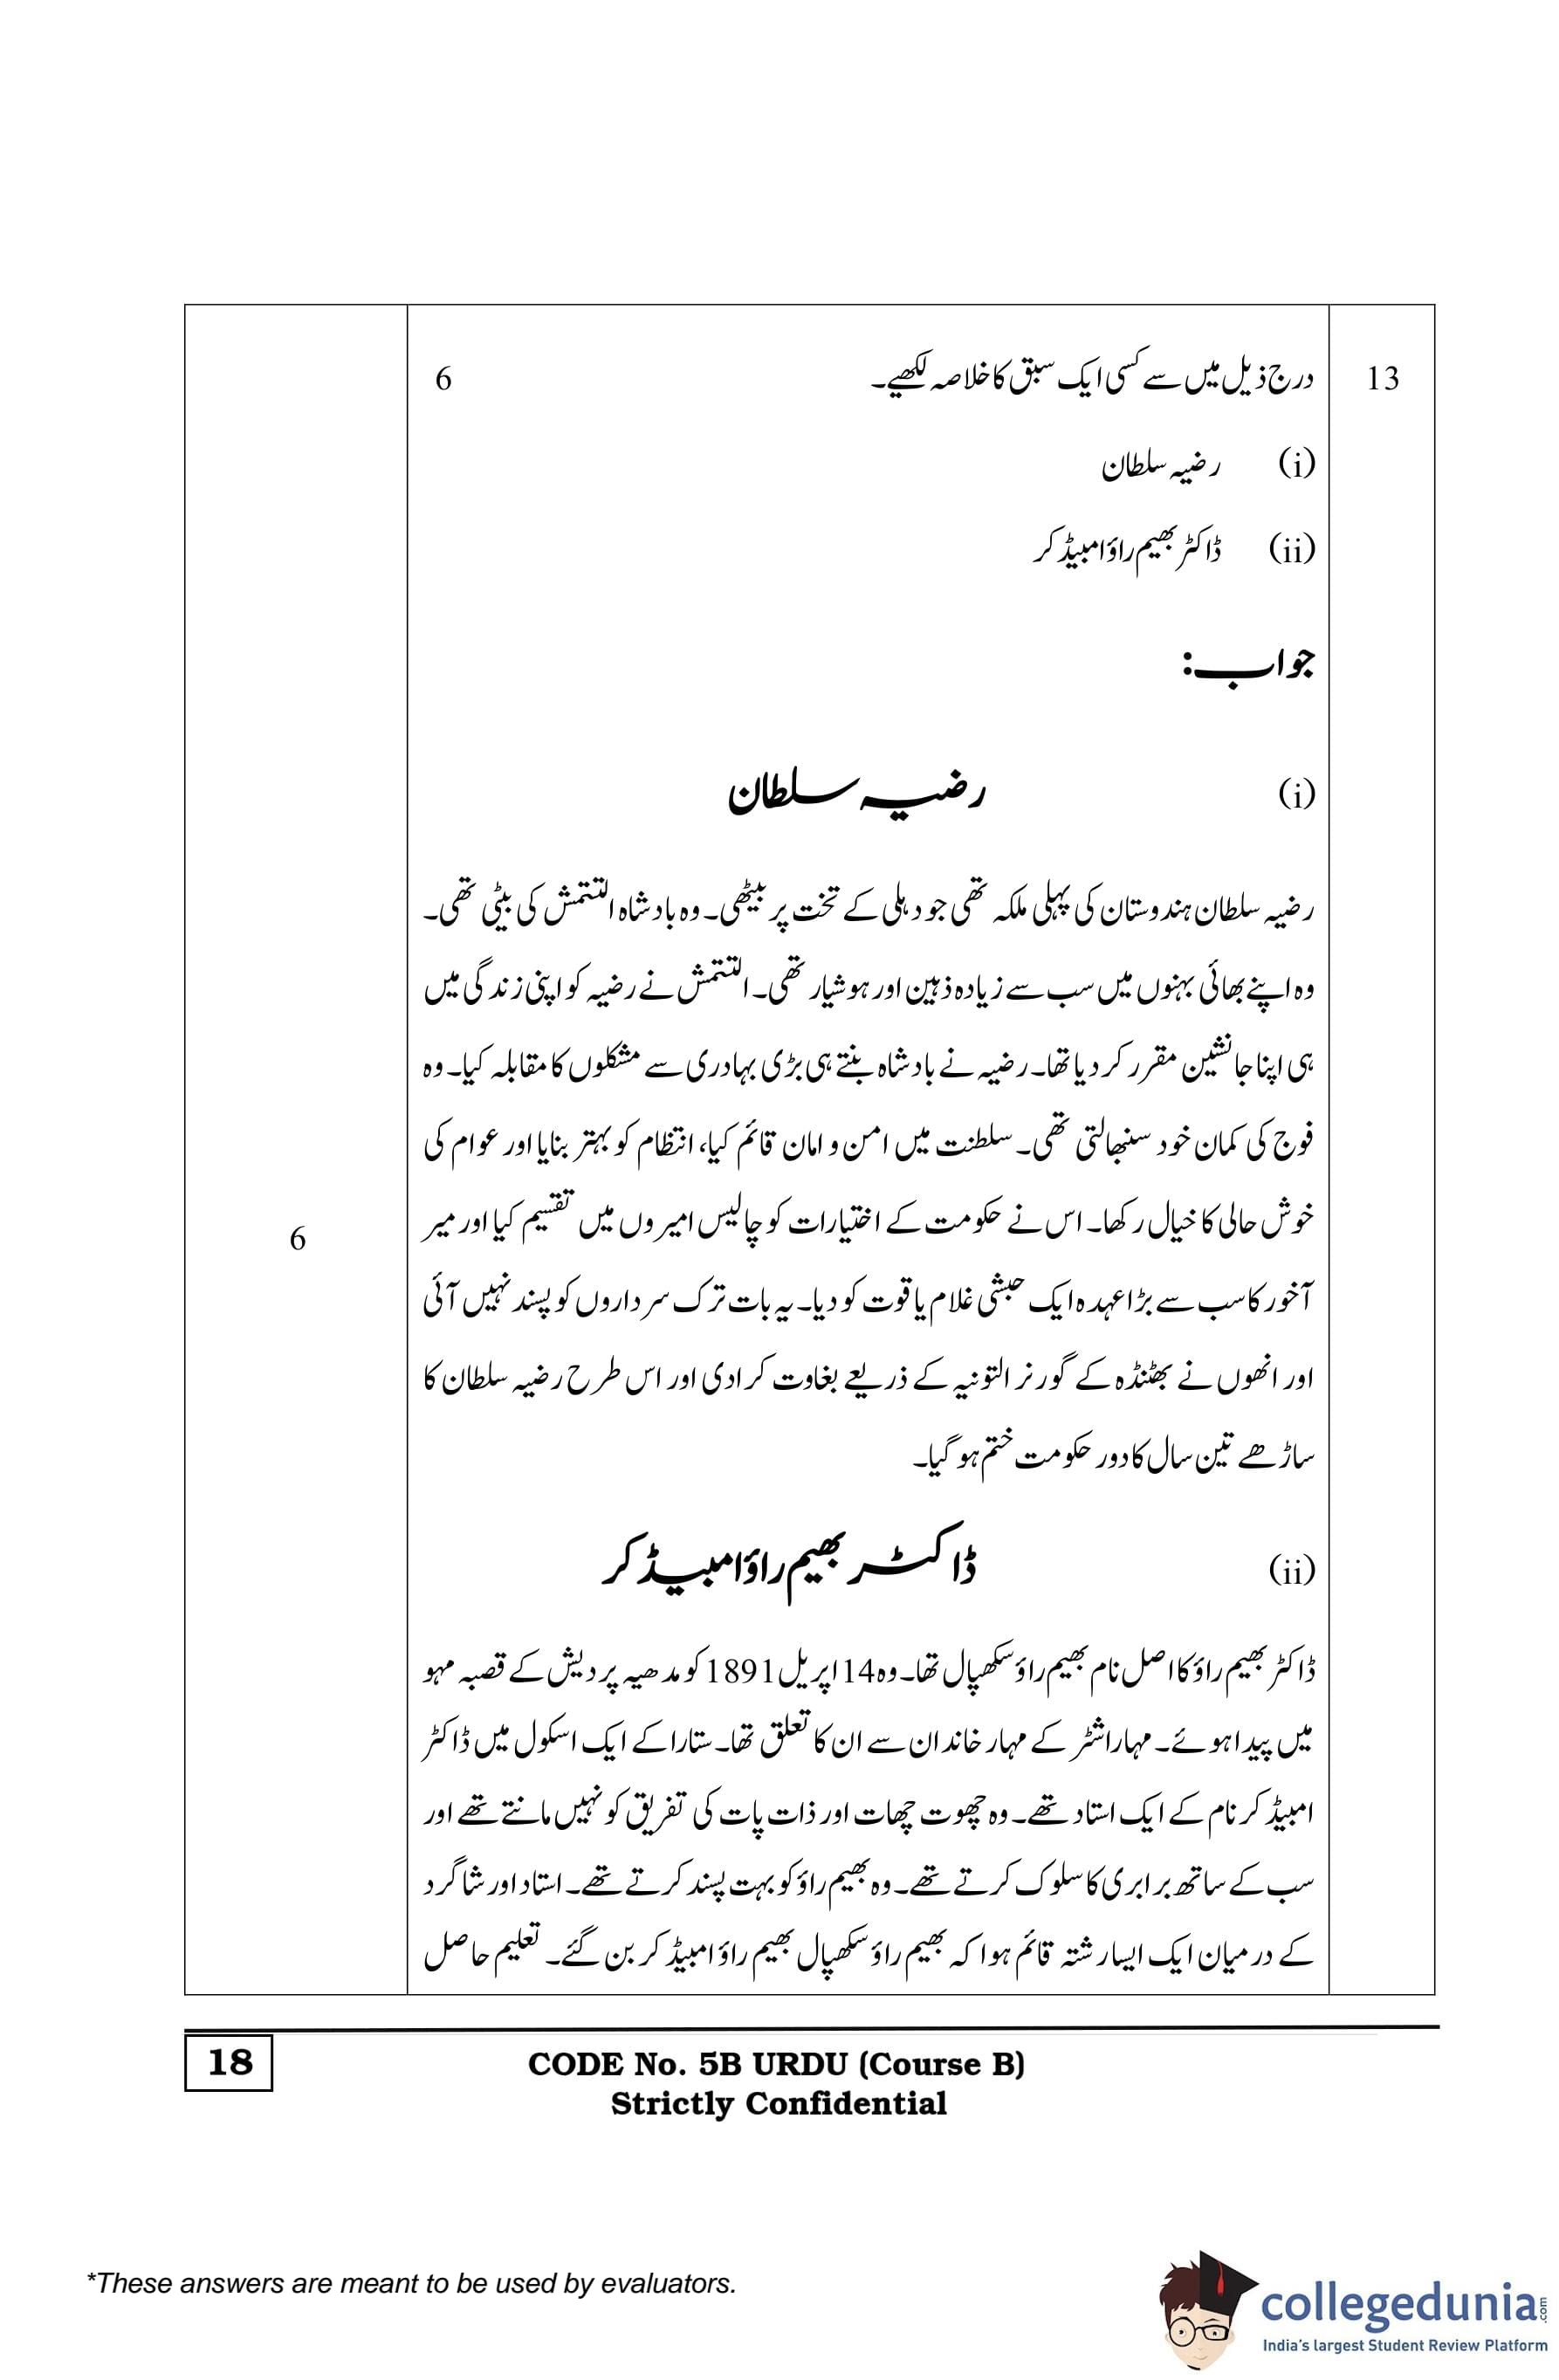 13 درج ذیل میں سے کسی ایک سبق کا خلاصہ لکھیے۔ 6
(i) رضیہ سلطان
(ii) ڈاکٹر بھیم راؤ امبیڈ کر
جواب:
(i) رضیہ سلطان
رضیہ سلطان ہندوستان کی پہلی ملکہ تھی جو دہلی کے تخت پر بیٹھی۔ وہ بادشاہ التتمش کی بیٹی تھی۔
وہ اپنے بھائی بہنوں میں سب سے زیادہ ذہین اور ہوشیار تھی۔ التتمش نے رضیہ کو اپنی زندگی میں
ہی اپنا جانشین مقرر کر دیا تھا۔ رضیہ نے بادشاہ بنتے ہی بڑی بہادری سے مشکلوں کا مقابلہ کیا۔ وہ
فوج کی کمان خود سنبھالتی تھی۔ سلطنت میں امن و امان قائم کیا، انتظام کو بہتر بنایا اور عوام کی
خوش حالی کا خیال رکھا۔ اس نے حکومت کے اختیارات کو چالیس امیروں میں تقسیم کیا اور میر
6
آخور کا سب سے بڑا عہدہ ایک حبشی غلام یاقوت کو دیا۔ یہ بات ترک سرداروں کو پسند نہیں آئی
اور انھوں نے بھٹنڈہ کے گورنر التونیہ کے ذریعے بغاوت کرادی اور اس طرح رضیہ سلطان کا
ساڑھے تین سال کا دور حکومت ختم ہو گیا۔
(ii) ڈاکٹر بھیم راؤ امبیڈ کر
ڈاکٹر بھیم راؤ کا اصل نام بھیم راؤ سکھپال تھا۔ وہ 14 اپریل 1891 کو مدھیہ پردیش کے قصبہ مہو
میں پیدا ہوئے۔ مہاراشٹر کے مہار خاندان سے ان کا تعلق تھا۔ ستارا کے ایک اسکول میں ڈاکٹر
امبیڈ کر نام کے ایک استاد تھے۔ وہ چھوت چھات اور ذات پات کی تفریق کو نہیں مانتے تھے اور
سب کے ساتھ برابری کا سلوک کرتے تھے۔ وہ بھیم راؤ کو بہت پسند کرتے تھے۔ استاد اور شاگرد
کے درمیان ایک ایسا رشتہ قائم ہوا کہ بھیم راؤ سکھپال بھیم راؤ امبیڈ کر بن گئے۔ تعلیم حاصل
18
CODE No. 5B URDU (Course B)
Strictly Confidential
*These answers are meant to be used by evaluators.
collegedunia.com
India's largest Student Review Platform